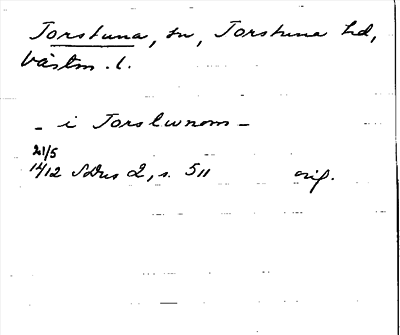 Torstuna, sn, Torstuna hd,
Västm. l.
– i Torslunom –
21/5
1412 SDns 2, s. 511 orig.